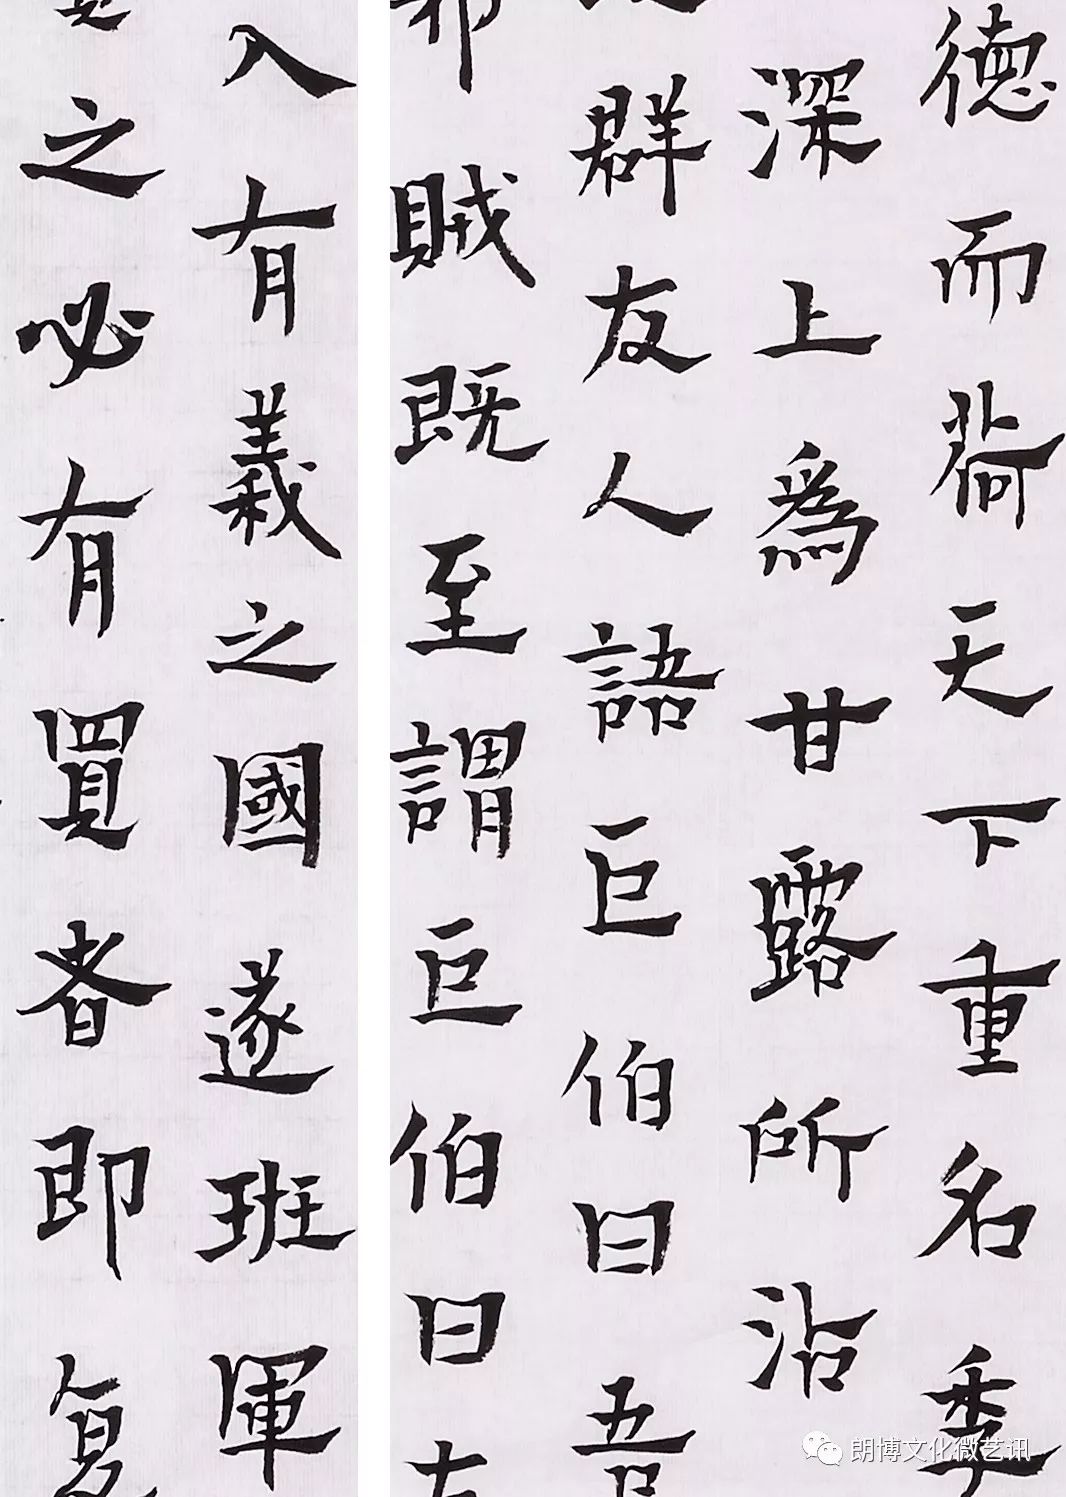 德而天下重名季
深上爲甘露所沾
群友人語巨伯曰吾
邪賊既至謂巨伯曰大
入有義之國遂班軍
之必有買者即复
朗博文化微艺讯